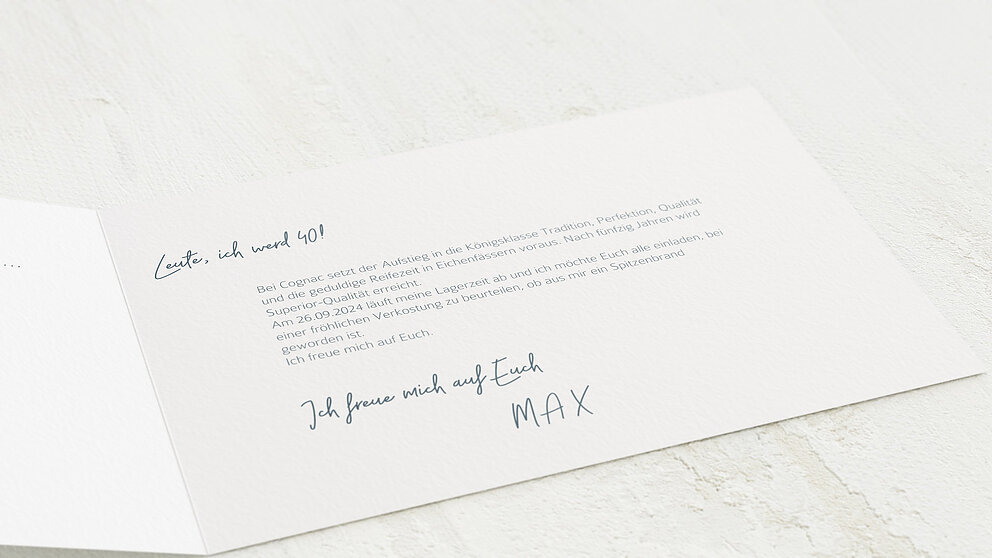 ...
Leute, ich werd 40!
Bei Cognac setzt der Aufstieg in die Königsklasse Tradition, Perfektion, Qualität
und die geduldige Reifezeit in Eichenfässern voraus. Nach fünfzig Jahren wird
Superior-Qualität erreicht.
Am 26.09.2024 läuft meine Lagerzeit ab und ich möchte Euch alle einladen, bei
einer fröhlichen Verkostung zu beurteilen, ob aus mir ein Spitzenbrand
geworden ist.
Ich freue mich auf Euch.
Ich freue mich auf Euch
MAX